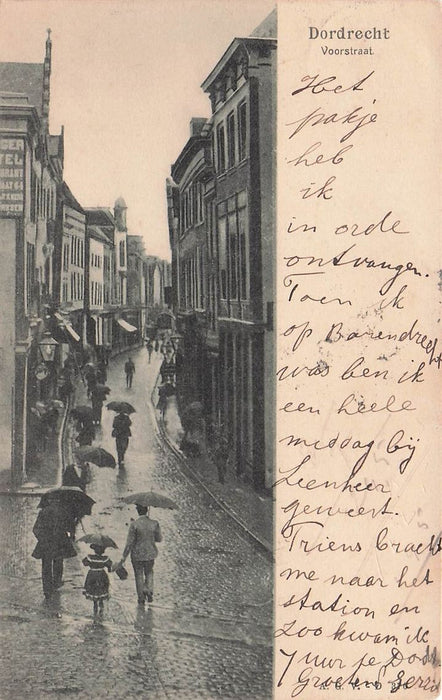 Dordrecht
Voorstraat.
Het
pakje
heb
ik
in orde
ontvangen.
Toen ik
op Barendrecht
was ben ik
een heele
middag bij
Leenheer
geweest.
Triens bracht
me naar het
station en
zoo kwam ik
7 uur te Dodt
Groetend
TEL